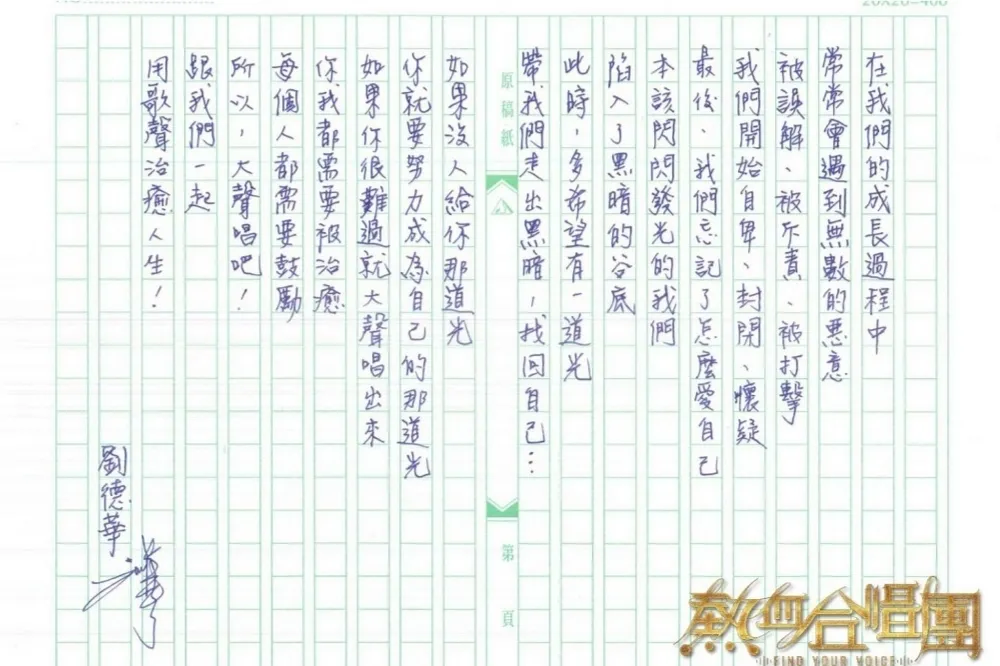 20X20=400
在我們的成長過程中
常常會遇到無數的惡意
被誤解、被斥責、被打擊
我們開始自卑、封閉、懷疑
最後、我們忘記了怎麼愛自己
本該閃閃發光的我們
陷入了黑暗的谷底
此時,多希望有一道光
帶我們走出黑暗,找回自己…
原稿紙
第 頁
如果沒人給你那道光
你就要努力成為自己的那道光
如果你很難過就大聲唱出來
你我都需要被治癒
每個人都需要鼓勵
所以,大聲唱吧!
跟我們一起
用歌聲治癒人生!
劉德華
熱血合唱團
FIND YOUR VOICE